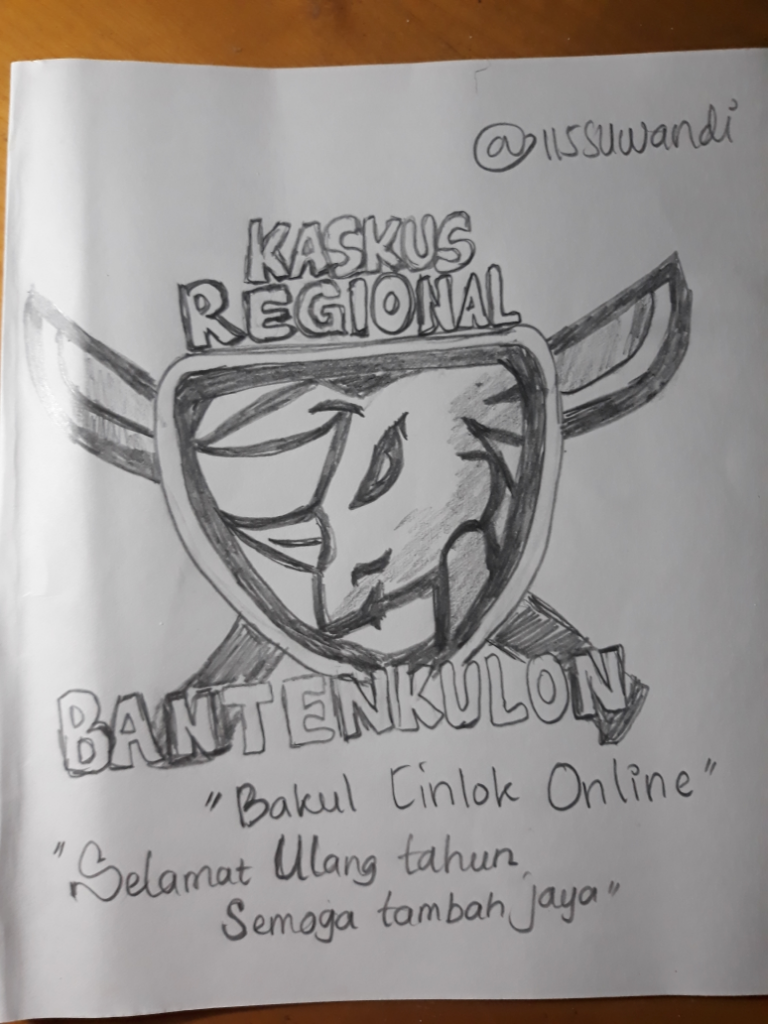 @iissuwandi
KASKUS
REGIONAL
BANTENKULON
"Bakul Cinlok Online"
"Selamat Ulang tahun
Semoga tambah jaya"